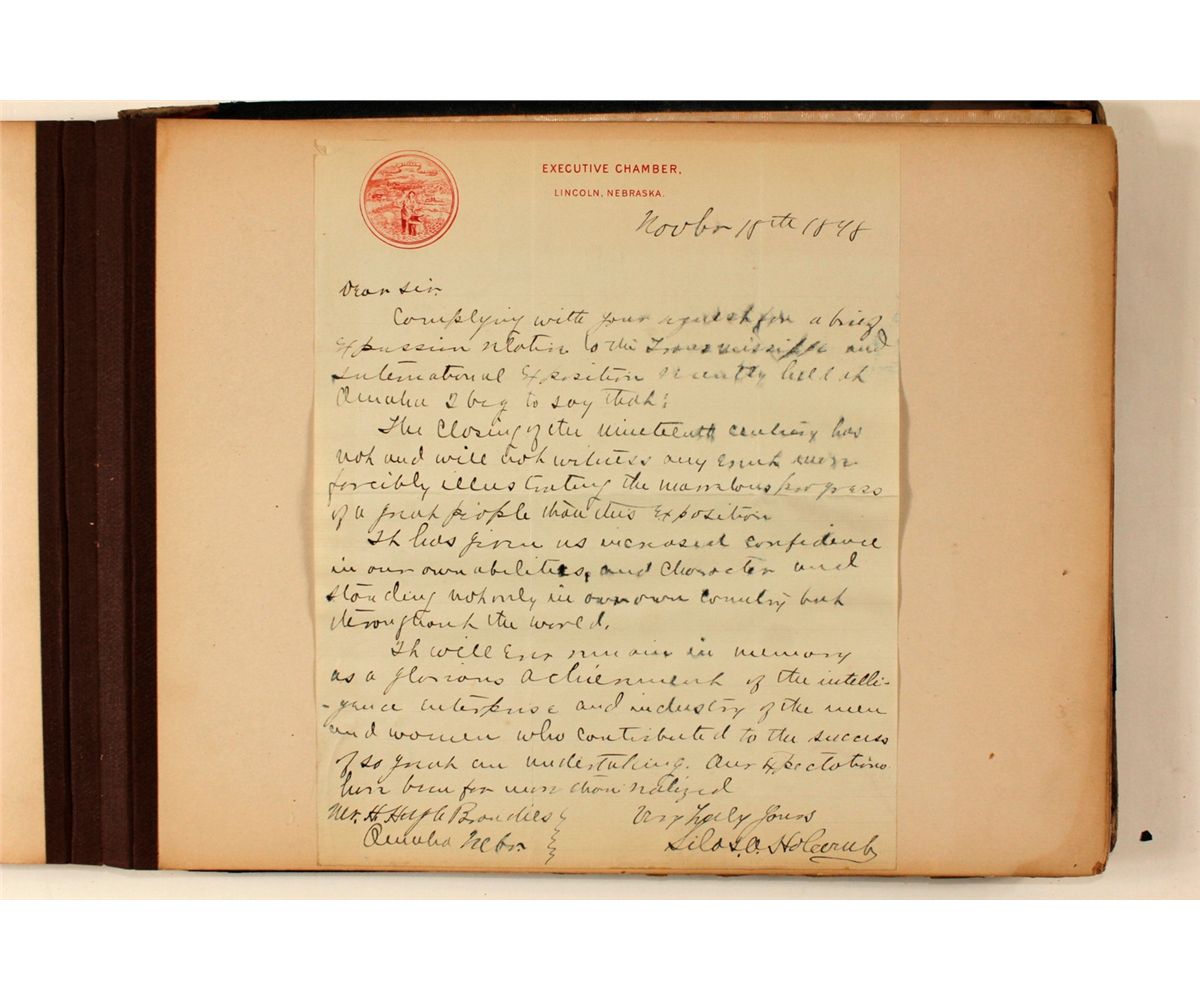 EXECUTIVE CHAMBER,
LINCOLN, NEBRASKA.
Novbr 18th 1898
Dear Sir.
Complying with your request for a brief
expression relative to the Transmississippi and
International Exposition recently held at
Omaha I beg to say that:
The closing of the nineteenth century has
not and will not witness any event more
forcibly illustrating the marvelous progress
of a great people than this Exposition
It has given us increased confidence
in our own abilities, and character and
standing not only in our own country but
throughout the world.
It will ever remain in memory
as a glorious achievement of the intelli-
-gence enterprise and industry of the men
and women who contributed to the success
of so great an undertaking. Our expectations
have been far more than realized
Mr. H. Hugh Brandies
Omaha Nebr.
Very Truly Yours
Silas A. Holcomb